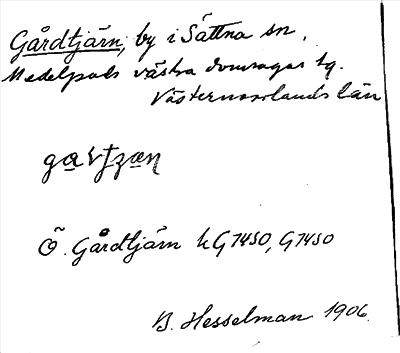 Gårdtjärn, by i Sättna sn,
Medelpads västra domsagas tg.
Västernorrlands län
Ö. Gårdtjärn k G 7450, G 7450
B. Hesselman 1906.